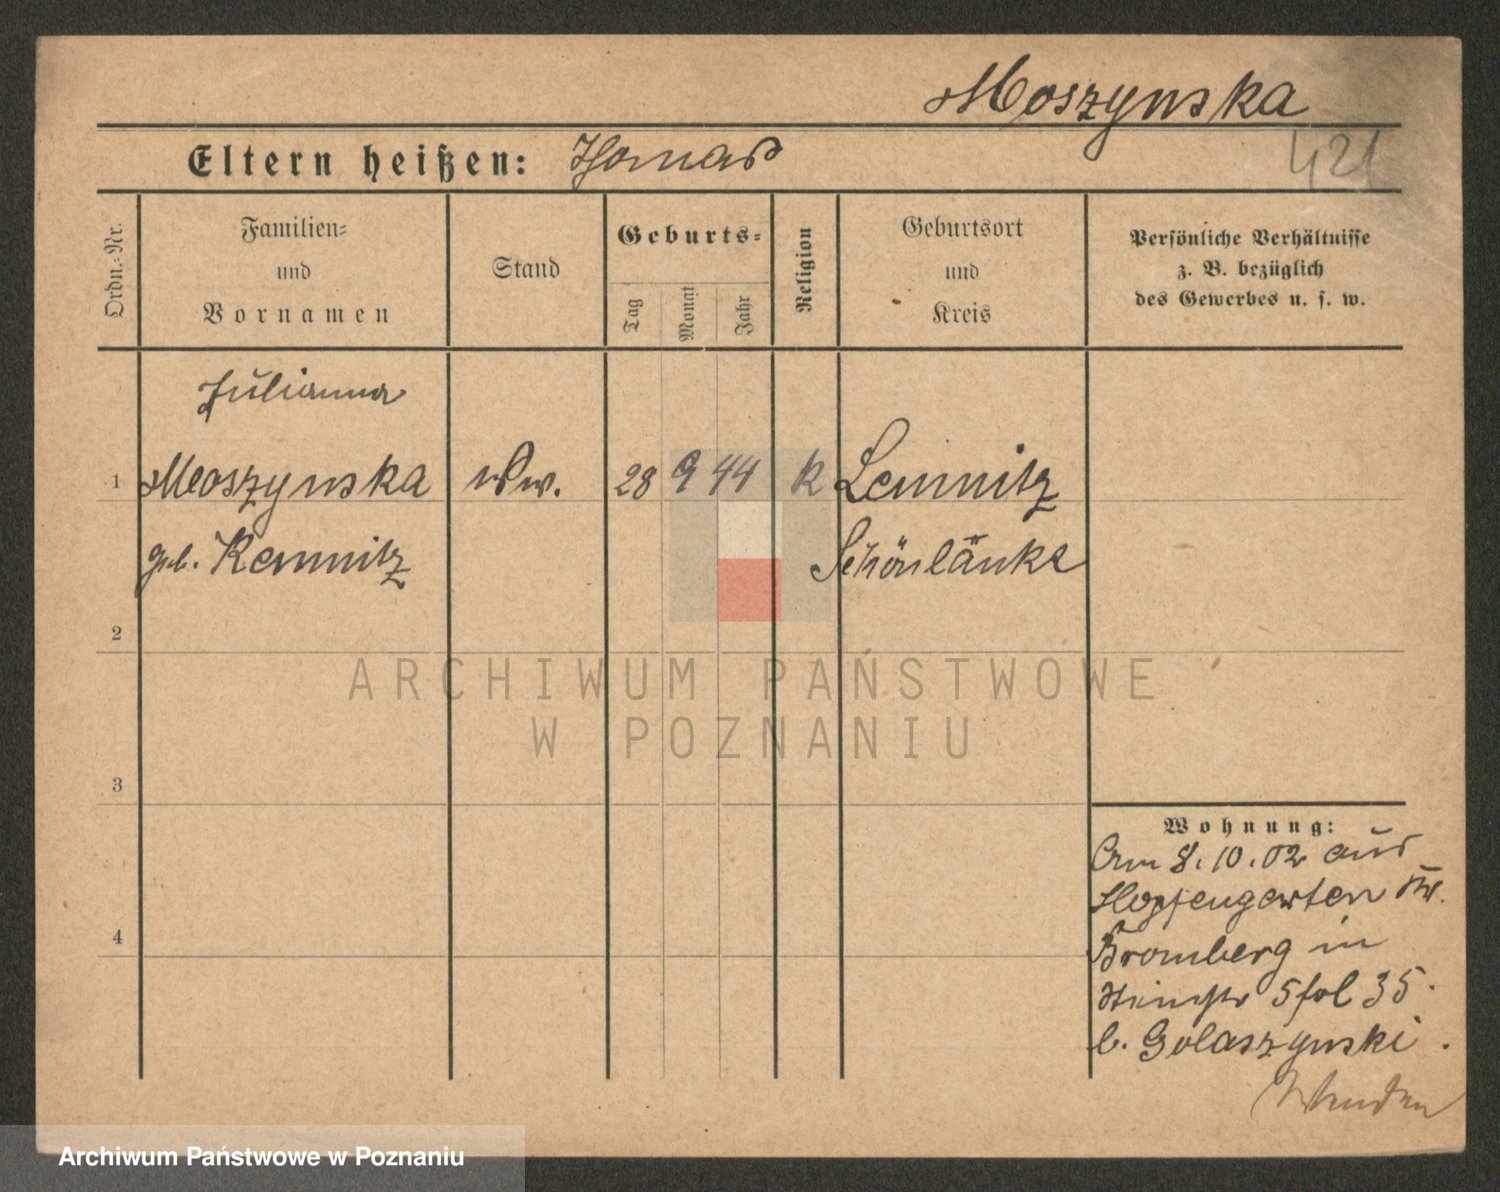 Moszynska
421
Eltern heißen: Thomas
Ordn.-Nr.
Familien- und Vornamen
Stand
Geburts-
Tag
Monat
Jahr
Religion
Geburtsort und Kreis
Persönliche Verhältnisse
z. B. bezüglich
des Gewerbes u. s. w.
Julianna
1 Moszynska Ww. 28 9 44 k Lemnitz
geb. Kemnitz Schönlänke
2
ARCHIWUM PAŃSTWOWE
W POZNANIU
3
4
Wohnung:
Am 8.10.02 aus
Hopfengarten Kr.
Bromberg in
5 fol 35.
b. Golaszynski.
Archiwum Państwowe w Poznaniu